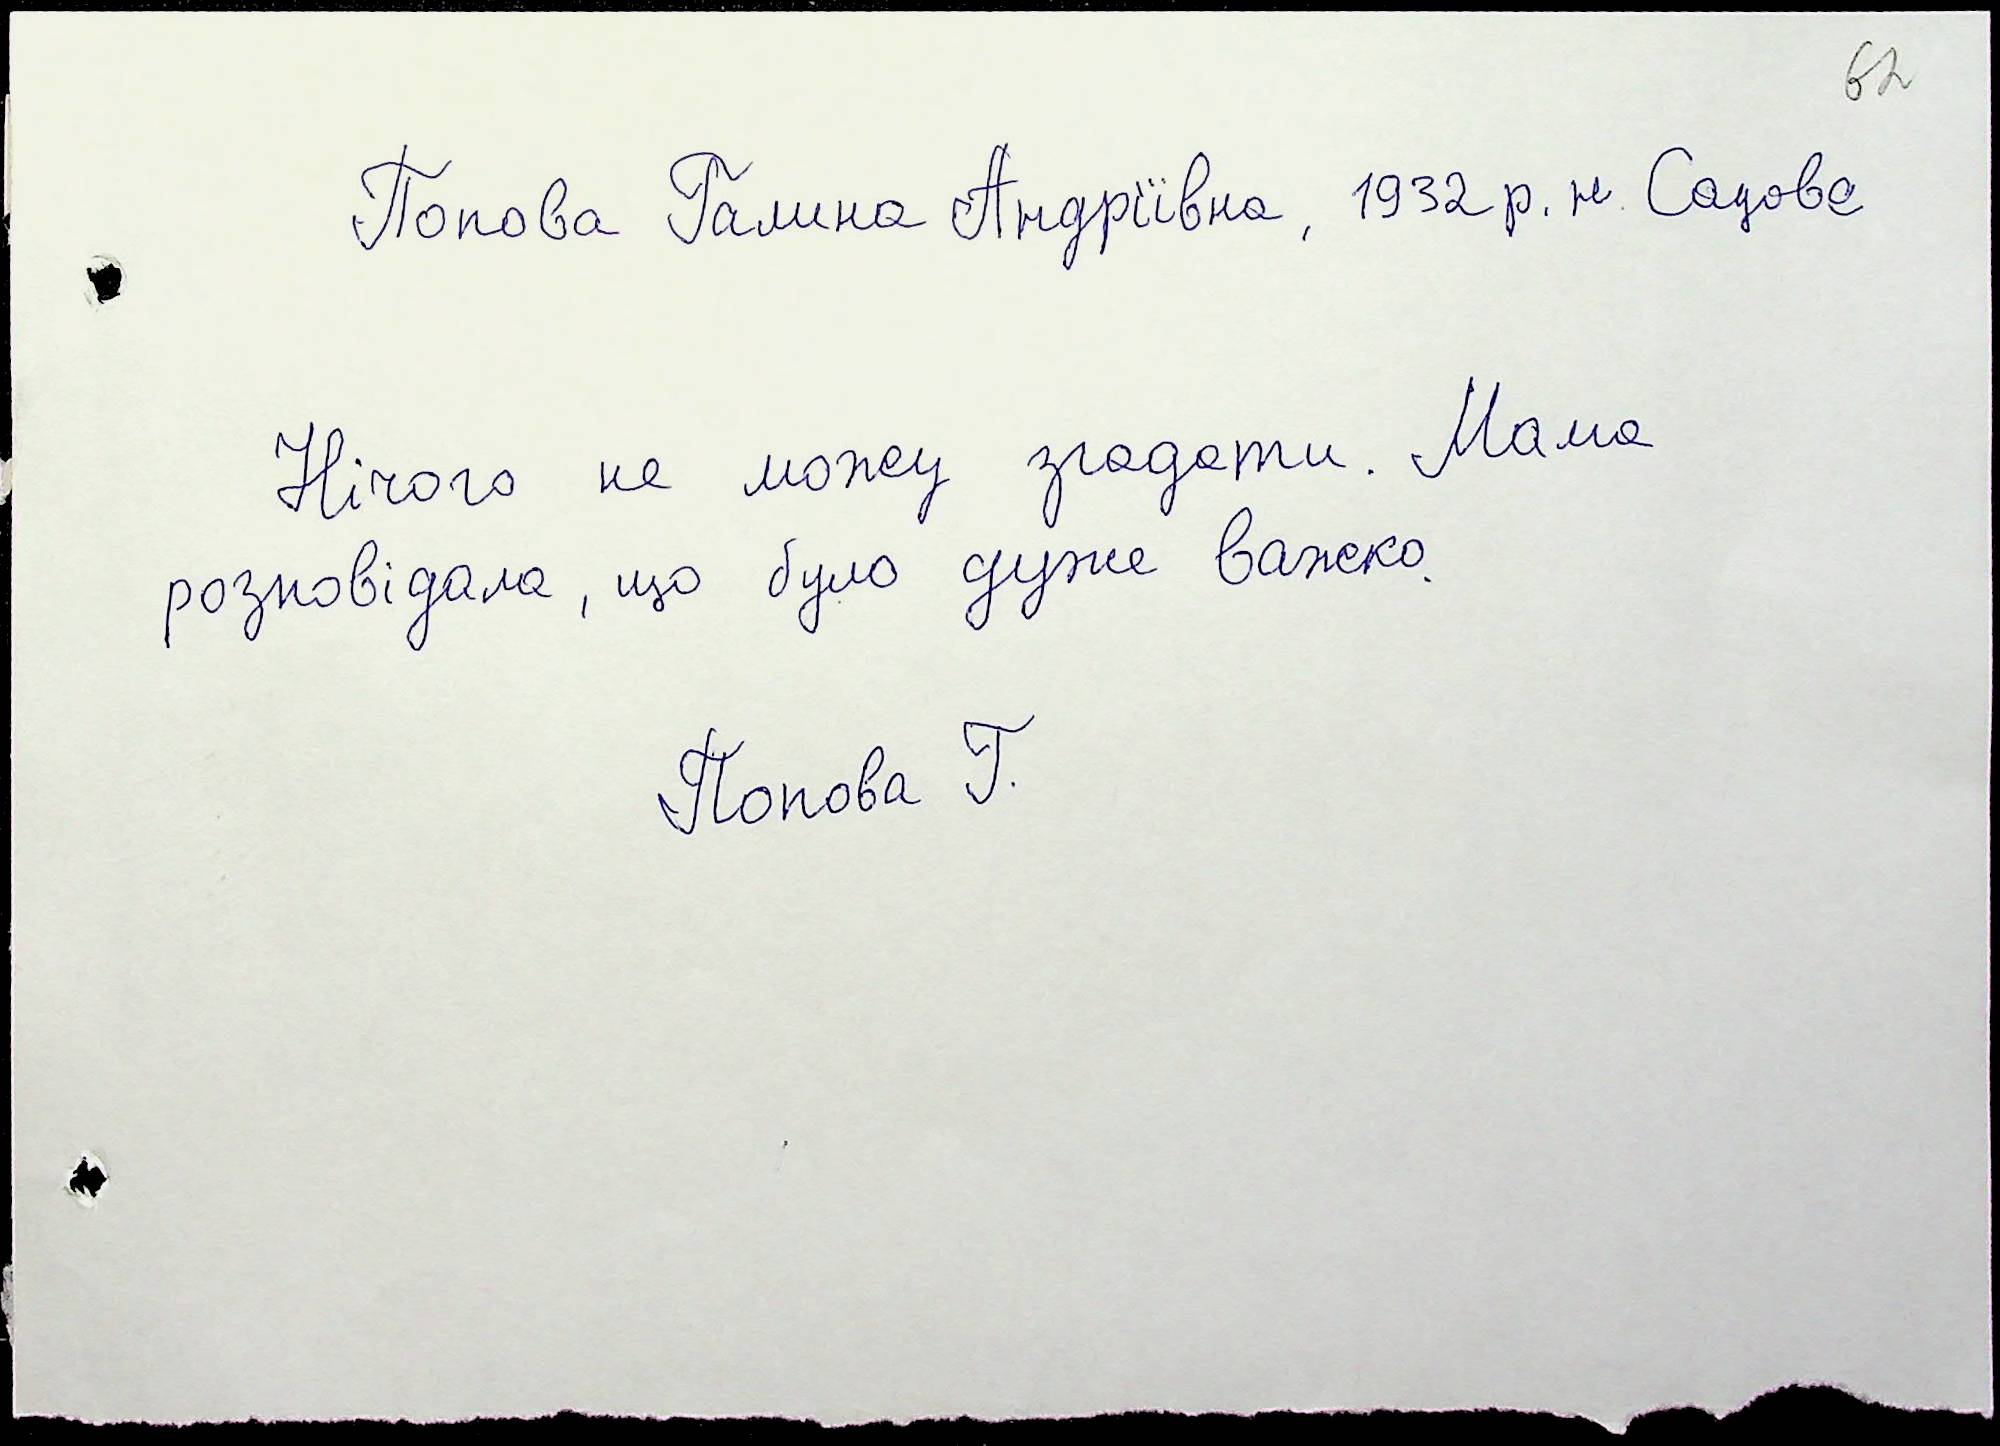 62
Попова Галина Андріївна, 1932 р. н. Садове
Нічого не можу згадати. Мама
розповідала, що було дуже важко.
Попова Г.